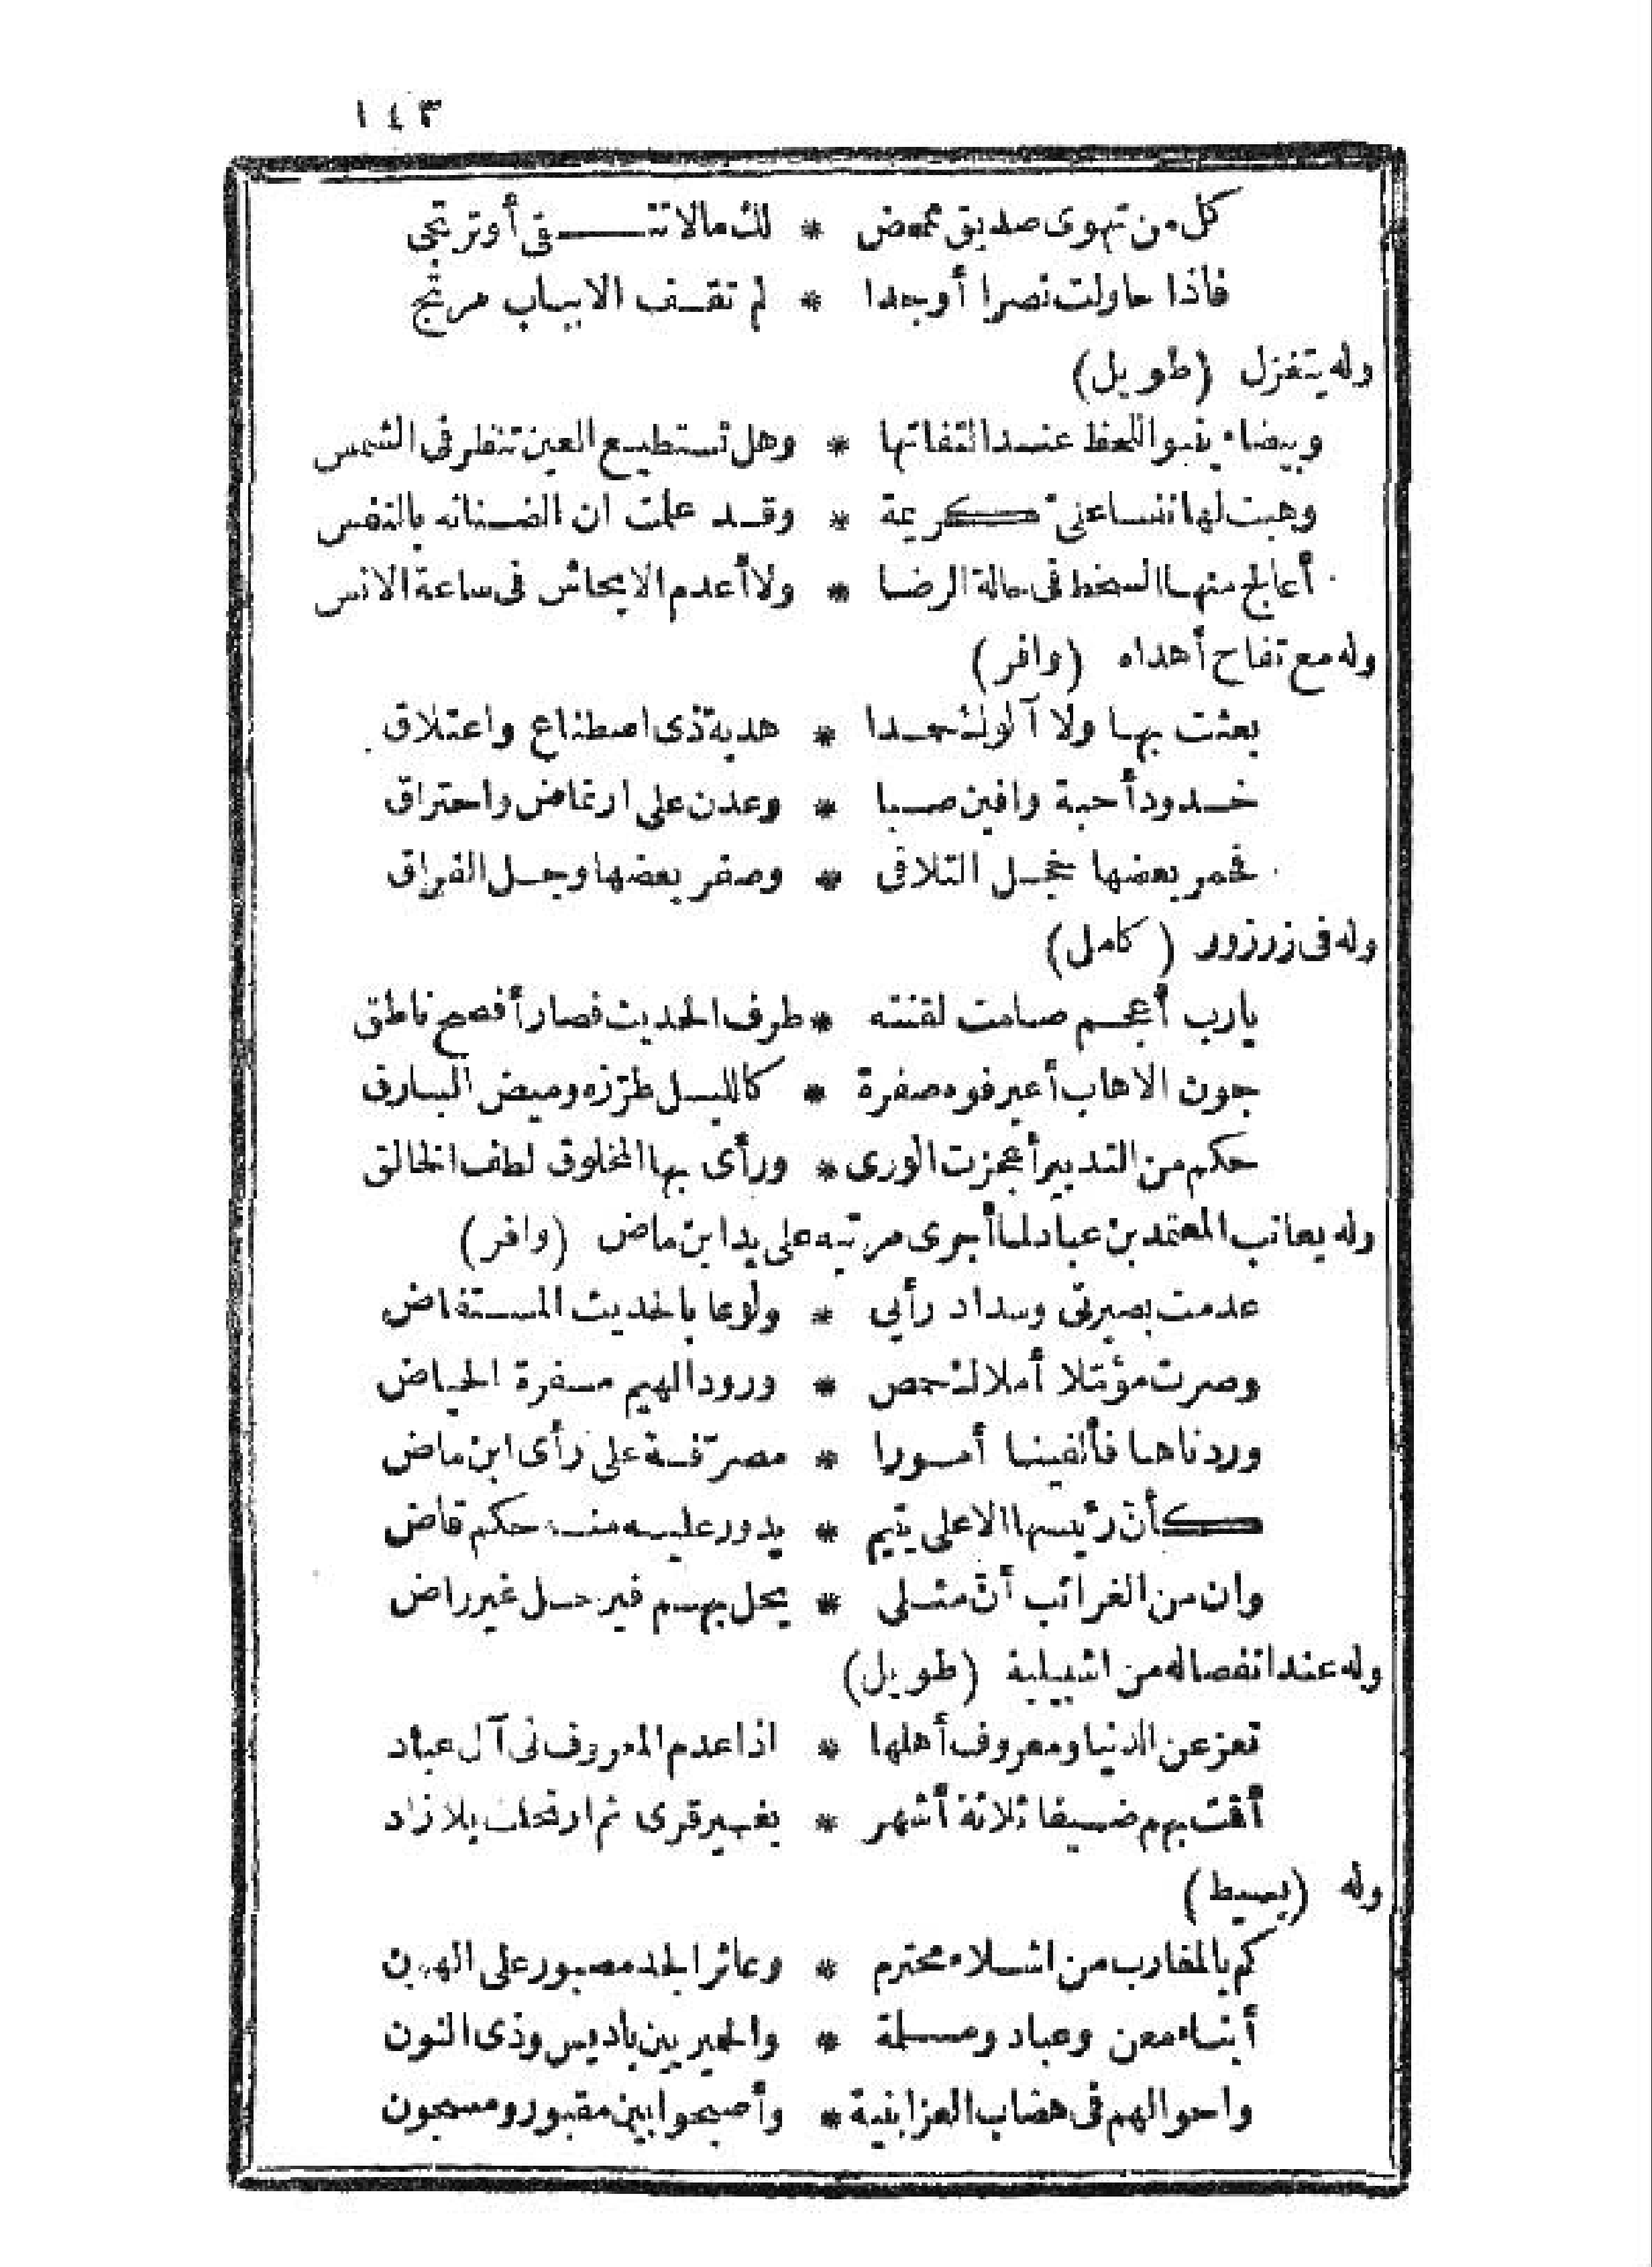 ١٤٣
كل من تهوى صديق ممحض * لك ما لا تتقى أو ترتجى
فاذا حاولت نصرا أو جدا * لم تقف الا بباب مرتج
وله يتغزل (طويل)
وبيضاء ينبو اللحظ عند التفاتها * وهل تستطيع العين تنظر فى الشمس
وهبت لها نفسا على كريمة * وقد علمت ان الضنانه بالنفس
أعالج منها السخط فى حالة الرضا * ولا أعدم الايحاش فى ساعة الانس
وله مع تفاح أهداه (وافر)
بعثت بها ولا آلوك حمدا * هدية ذى اصطناع واعتلاق
خدود أحبة وافين صبا * وعدن على ارتماض واحتراق
فحمر بعضها خجل التلاقى * وصفر بعضها وجل الفراق
وله فى زرزور (كامل)
يارب أعجم صامت لقنته * طرف الحديث فصار أفصح ناطق
جون الاهاب أعير فوه صفرة * كالليل طرّزه وميض البارق
حكم من التدبير أعجزت الورى * ورأى بها المخلوق لطف الخالق
وله يعاتب المعتمد بن عباد لما أجرى مرتبه على يد ابن ماض (وافر)
عدمت بصيرتى وسداد رأيى * ولوعا بالحديث المستفاض
وصرت مؤتلا أملاك حمص * ورود الهيم مسفرة الحياض
وردناها فألفينا أمورا * مصرّفة على رأى ابن ماض
كأنّ رئيسها الاعلى يتيم * يدور عليه منه حكم قاض
وان من الغرائب أنّ مثلى * يحل بهم فيرحل غير راض
وله عند انفصاله من اشبيلية (طويل)
تعز عن الدنيا ومعروف أهلها * اذا عدم المعروف فى آل عباد
أقمت بهم ضيفا ثلاثة أشهر * بغير قرى ثم ارتحلت بلا زاد
وله (بسيط)
كم بالمغارب من اشلاء محترم * وعاثر الجد مصبور على الهون
أبناء معن وعباد ومسلمة * والحميريين باديس وذى النون
واحوالهم فى هضاب العز ابنية * وأصبحوا بين مقبور ومسجون